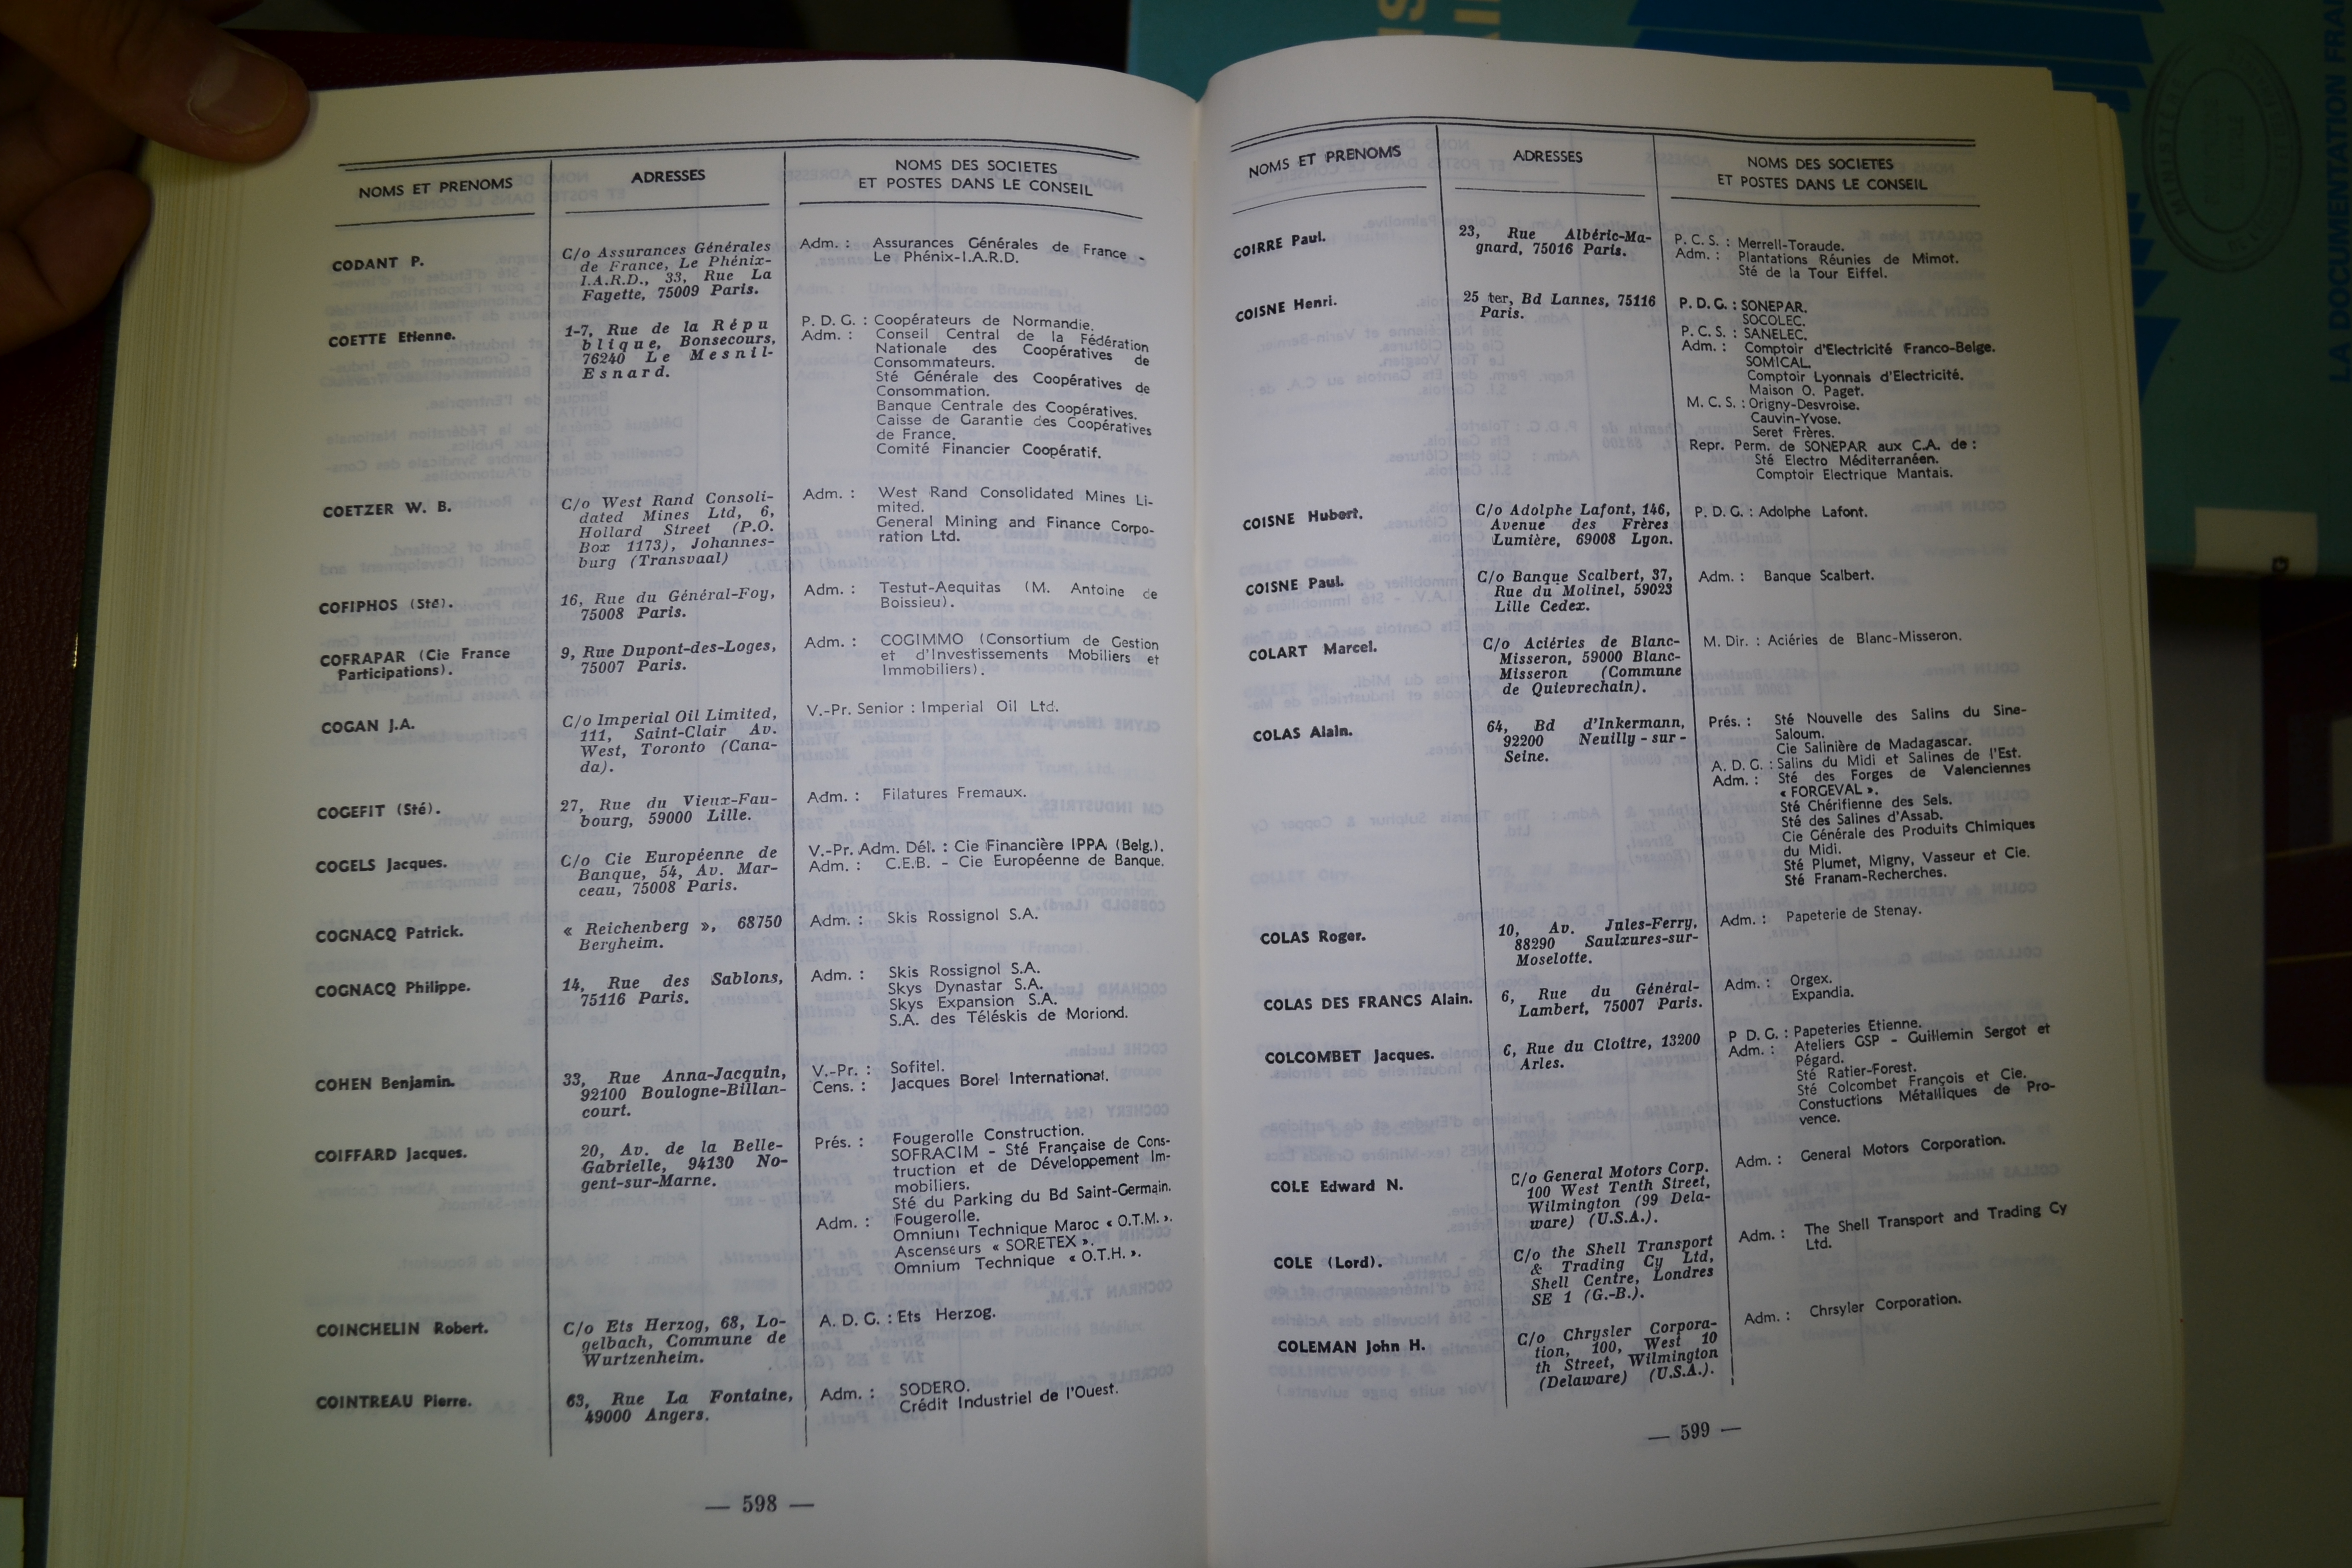 NOMS ET PRENOMS
ADRESSES
NOMS DES SOCIETES
ET POSTES DANS LE CONSEIL
CODANT P.
C/o Assurances Générales
de France, Le Phénix-
I.A.R.D., 33, Rue La
Fayette, 75009 Paris.
Adm. : Assurances Générales de France -
Le Phénix-I.A.R.D.
COETTE Etienne.
1-7, Rue de la Répu
blique, Bonsecours,
76240 Le Mesnil-
Esnard.
P. D. G. : Coopérateurs de Normandie.
Adm. : Conseil Central de la Fédération
Nationale des Coopératives de
Consommateurs.
Sté Générale des Coopératives de
Consommation.
Banque Centrale des Coopératives.
Caisse de Garantie des Coopératives
de France.
Comité Financier Coopératif.
COETZER W. B.
C/o West Rand Consoli-
dated Mines Ltd, 6,
Hollard Street (P.O.
Box 1173), Johannes-
burg (Transvaal)
Adm. : West Rand Consolidated Mines Li-
mited.
General Mining and Finance Corpo-
ration Ltd.
COFIPHOS (Sté).
16, Rue du Général-Foy,
75008 Paris.
Adm. : Testut-Aequitas (M. Antoine de
Boissieu).
COFRAPAR (Cie France
Participations).
9, Rue Dupont-des-Loges,
75007 Paris.
Adm. : COGIMMO (Consortium de Gestion
et d'Investissements Mobiliers et
Immobiliers).
COGAN J.A.
C/o Imperial Oil Limited,
111, Saint-Clair Av.
West, Toronto (Cana-
da).
V.-Pr. Senior : Imperial Oil Ltd.
COGEFIT (Sté).
27, Rue du Vieux-Fau-
bourg, 59000 Lille.
Adm. : Filatures Fremaux.
COGELS Jacques.
C/o Cie Européenne de
Banque, 54, Av. Mar-
ceau, 75008 Paris.
V.-Pr. Adm. Dél. : Cie Financière IPPA (Belg.).
Adm. : C.E.B. - Cie Européenne de Banque.
COGNACQ Patrick.
« Reichenberg », 68750
Bergheim.
Adm. : Skis Rossignol S.A.
COGNACQ Philippe.
14, Rue des Sablons,
75116 Paris.
Adm. : Skis Rossignol S.A.
Skys Dynastar S.A.
Skys Expansion S.A.
S.A. des Téléskis de Moriond.
COHEN Benjamin.
33, Rue Anna-Jacquin,
92100 Boulogne-Billan-
court.
V.-Pr. : Sofitel.
Cens. : Jacques Borel International.
COIFFARD Jacques.
20, Av. de la Belle-
Gabrielle, 94130 No-
gent-sur-Marne.
Prés. : Fougerolle Construction.
SOFRACIM - Sté Française de Cons-
truction et de Développement Im-
mobiliers.
Sté du Parking du Bd Saint-Germain.
Adm. : Fougerolle.
Omnium Technique Maroc « O.T.M. ».
Ascenseurs « SORETEX ».
Omnium Technique « O.T.H. ».
COINCHELIN Robert.
C/o Ets Herzog, 68, Lo-
gelbach, Commune de
Wurtzenheim.
A. D. G. : Ets Herzog.
COINTREAU Pierre.
63, Rue La Fontaine,
49000 Angers.
Adm. : SODERO.
Crédit Industriel de l'Ouest.
— 598 —
NOMS ET PRENOMS
ADRESSES
NOMS DES SOCIETES
ET POSTES DANS LE CONSEIL
COIRRE Paul.
23, Rue Albéric-Ma-
gnard, 75016 Paris.
P. C. S. : Merrell-Toraude.
Adm. : Plantations Réunies de Mimot.
Sté de la Tour Eiffel.
COISNE Henri.
25 ter, Bd Lannes, 75116
Paris.
P. D. G. : SONEPAR.
SOCOLEC.
P. C. S. : SANELEC.
Adm. : Comptoir d'Electricité Franco-Belge.
SOMICAL.
Comptoir Lyonnais d'Electricité.
Maison O. Paget.
M. C. S. : Origny-Desvroise.
Cauvin-Yvose.
Seret Frères.
Repr. Perm. de SONEPAR aux C.A. de :
Sté Electro Méditerranéen.
Comptoir Electrique Mantais.
COISNE Hubert.
C/o Adolphe Lafont, 146,
Avenue des Frères
Lumière, 69008 Lyon.
P. D. G. : Adolphe Lafont.
COISNE Paul.
C/o Banque Scalbert, 37,
Rue du Molinel, 59023
Lille Cedex.
Adm. : Banque Scalbert.
COLART Marcel.
C/o Aciéries de Blanc-
Misseron, 59000 Blanc-
Misseron (Commune
de Quievrechain).
M. Dir. : Aciéries de Blanc-Misseron.
COLAS Alain.
64, Bd d'Inkermann,
92200 Neuilly - sur -
Seine.
Prés. : Sté Nouvelle des Salins du Sine-
Saloum.
Cie Salinière de Madagascar.
A. D. G. : Salins du Midi et Salines de l'Est.
Adm. : Sté des Forges de Valenciennes
« FORGEVAL ».
Sté Chérifienne des Sels.
Sté des Salines d'Assab.
Cie Générale des Produits Chimiques
du Midi.
Sté Plumet, Migny, Vasseur et Cie.
Sté Franam-Recherches.
COLAS Roger.
10, Av. Jules-Ferry,
88290 Saulxures-sur-
Moselotte.
Adm. : Papeterie de Stenay.
COLAS DES FRANCS Alain.
6, Rue du Général-
Lambert, 75007 Paris.
Adm. : Orgex.
Expandia.
COLCOMBET Jacques.
6, Rue du Cloître, 13200
Arles.
P D. G. : Papeteries Etienne.
Adm. : Ateliers GSP - Guillemin Sergot et
Pégard.
Sté Ratier-Forest.
Sté Colcombet François et Cie.
Constuctions Métalliques de Pro-
vence.
COLE Edward N.
C/o General Motors Corp.
100 West Tenth Street,
Wilmington (99 Dela-
ware) (U.S.A.).
Adm. : General Motors Corporation.
COLE (Lord).
C/o the Shell Transport
& Trading Cy Ltd,
Shell Centre, Londres
SE 1 (G.-B.).
Adm. : The Shell Transport and Trading Cy
Ltd.
COLEMAN John H.
C/o Chrysler Corpora-
tion, 100, West 10
th Street, Wilmington
(Delaware) (U.S.A.).
Adm. : Chrsyler Corporation.
— 599 —
LA DOCUMENTATION FRA